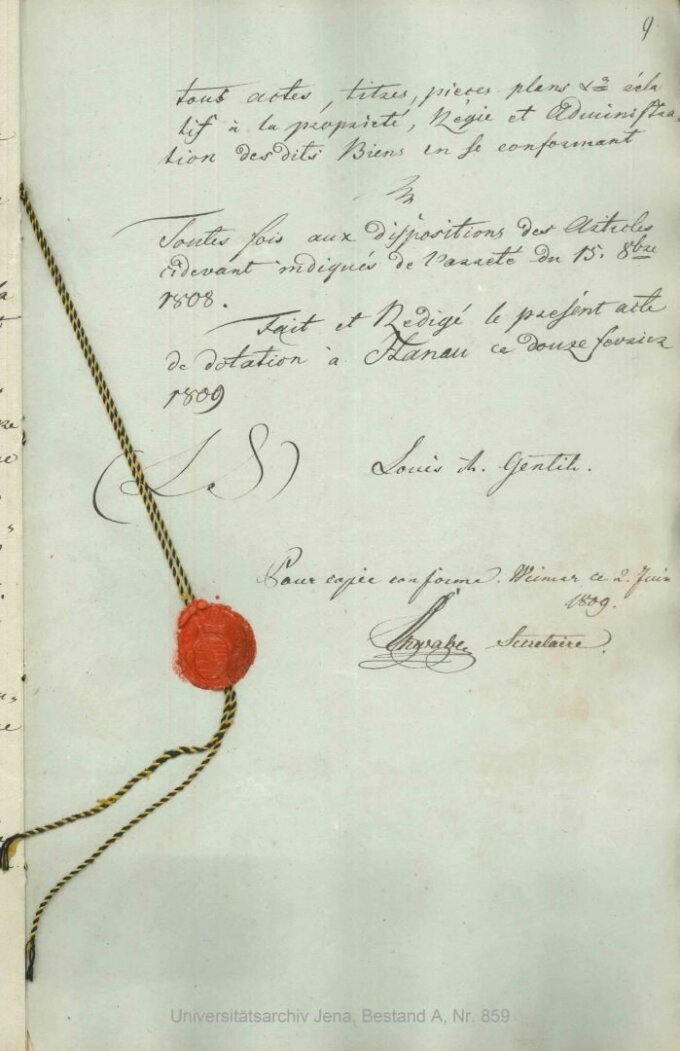 9
tous actes, titres, pieces plans &ca réla
tif à la propriété, Régie et Administra-
tion des dits Biens en se conformant
Toutes fois aux dispositions des Articles
cidevant indiqués de l'arreté du 15. 8bre
1808.
Fait et Redigé le présent acte
de dotation à Hanau ce douze fevrier
1809
(L. S) Louis th. Gentil.
Pour copie conforme. Weimar ce 2. Juin
1809.
Schwabe, Secretaire.
Universitätsarchiv Jena, Bestand A, Nr. 859